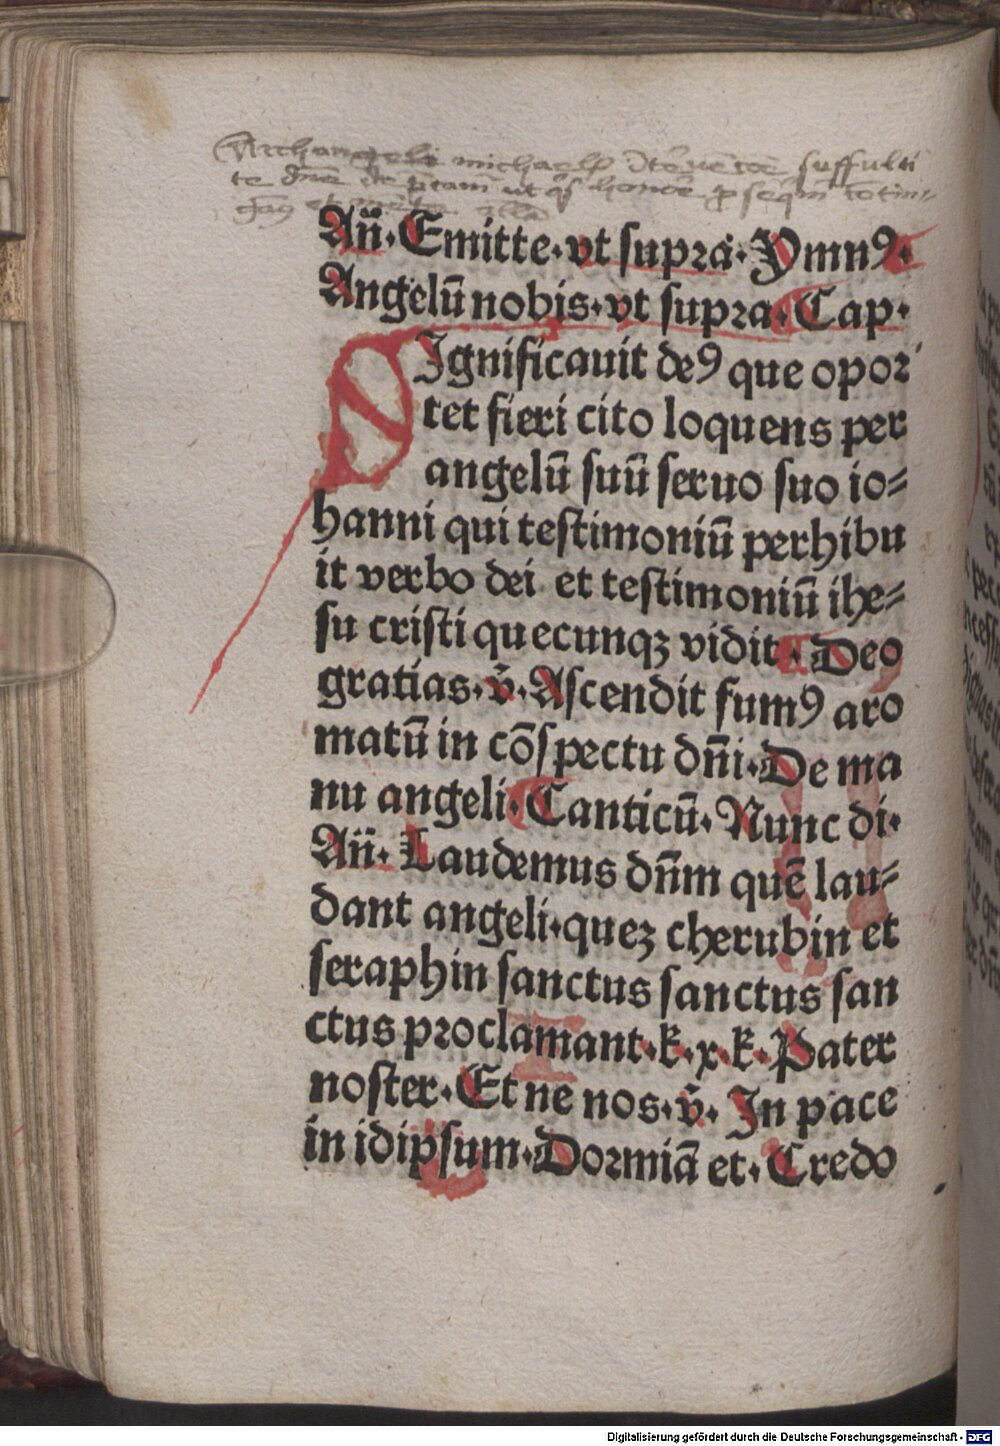 Archangeli michaelis suffulti
te
Añ. Emitte. vt supra. Ymnꝯ.
Angelū nobis. vt supra. Cap.
SIgnificauit deꝯ que opor
tet fieri cito loquens per
angelū suū seruo suo io⸗
hanni qui testimoniū perhibu
it verbo dei et testimoniū ihe⸗
su cristi quecunqꝫ vidit. Deo
gratias. v̄. Ascendit fumꝯ aro
matū in cōspectu dn̄i. De ma
nu angeli. Canticū. Nunc di.
Añ. Laudemus dn̄m quē lau⸗
dant angeli. queꝫ cherubin et
seraphin sanctus sanctus san
ctus proclamant. k̄. x. k̄. Pater
noster. Et ne nos. v̄. In pace
in idipsum. Dormiā et. Credo
Digitalisierung gefördert durch die Deutsche Forschungsgemeinschaft - DFG